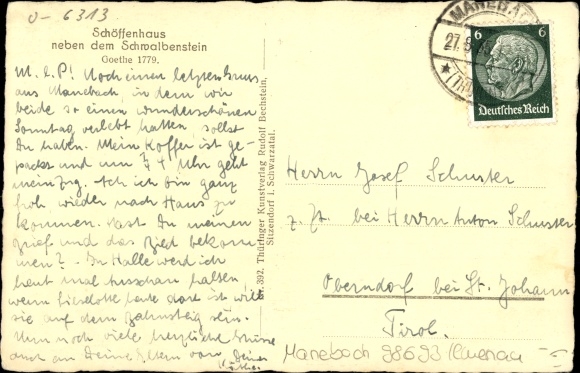 U- 6313
Schöffenhaus
neben dem Schwalbenstein
Goethe 1779.
M. l. P! Noch einen letzten Gruss
aus Manebach, in dem wir
beide so einen wunderschönen
Sonntag verlebt hatten, sollst
Du haben. Mein Koffer ist ge-
packt und um ¾ 4 Uhr geht
mein Zug. Ach ich bin ganz
froh wieder nach Haus zu
kommen. Hast Du meinen
Brief und das Bild bekom
men? - In Halle werd ich
heut mal Ausschau halten,
wenn Lieselotte heute dort ist will
sie auf dem Bahnsteig sein.
Nun noch viele herzliche Grüsse
auch an Deine Eltern von Deiner
Nr. 392. Thüringer Kunstverlag Rudolf Bechstein,
Sitzendorf i. Schwarzatal.
MANEBACH
27.8.
6 6
Deutsches Reich
Herrn Josef Schuster
z. Zt. bei Herrn Anton Schuster
Oberndorf bei St. Johann
Tirol.
Manebach 98693 Ilmenau